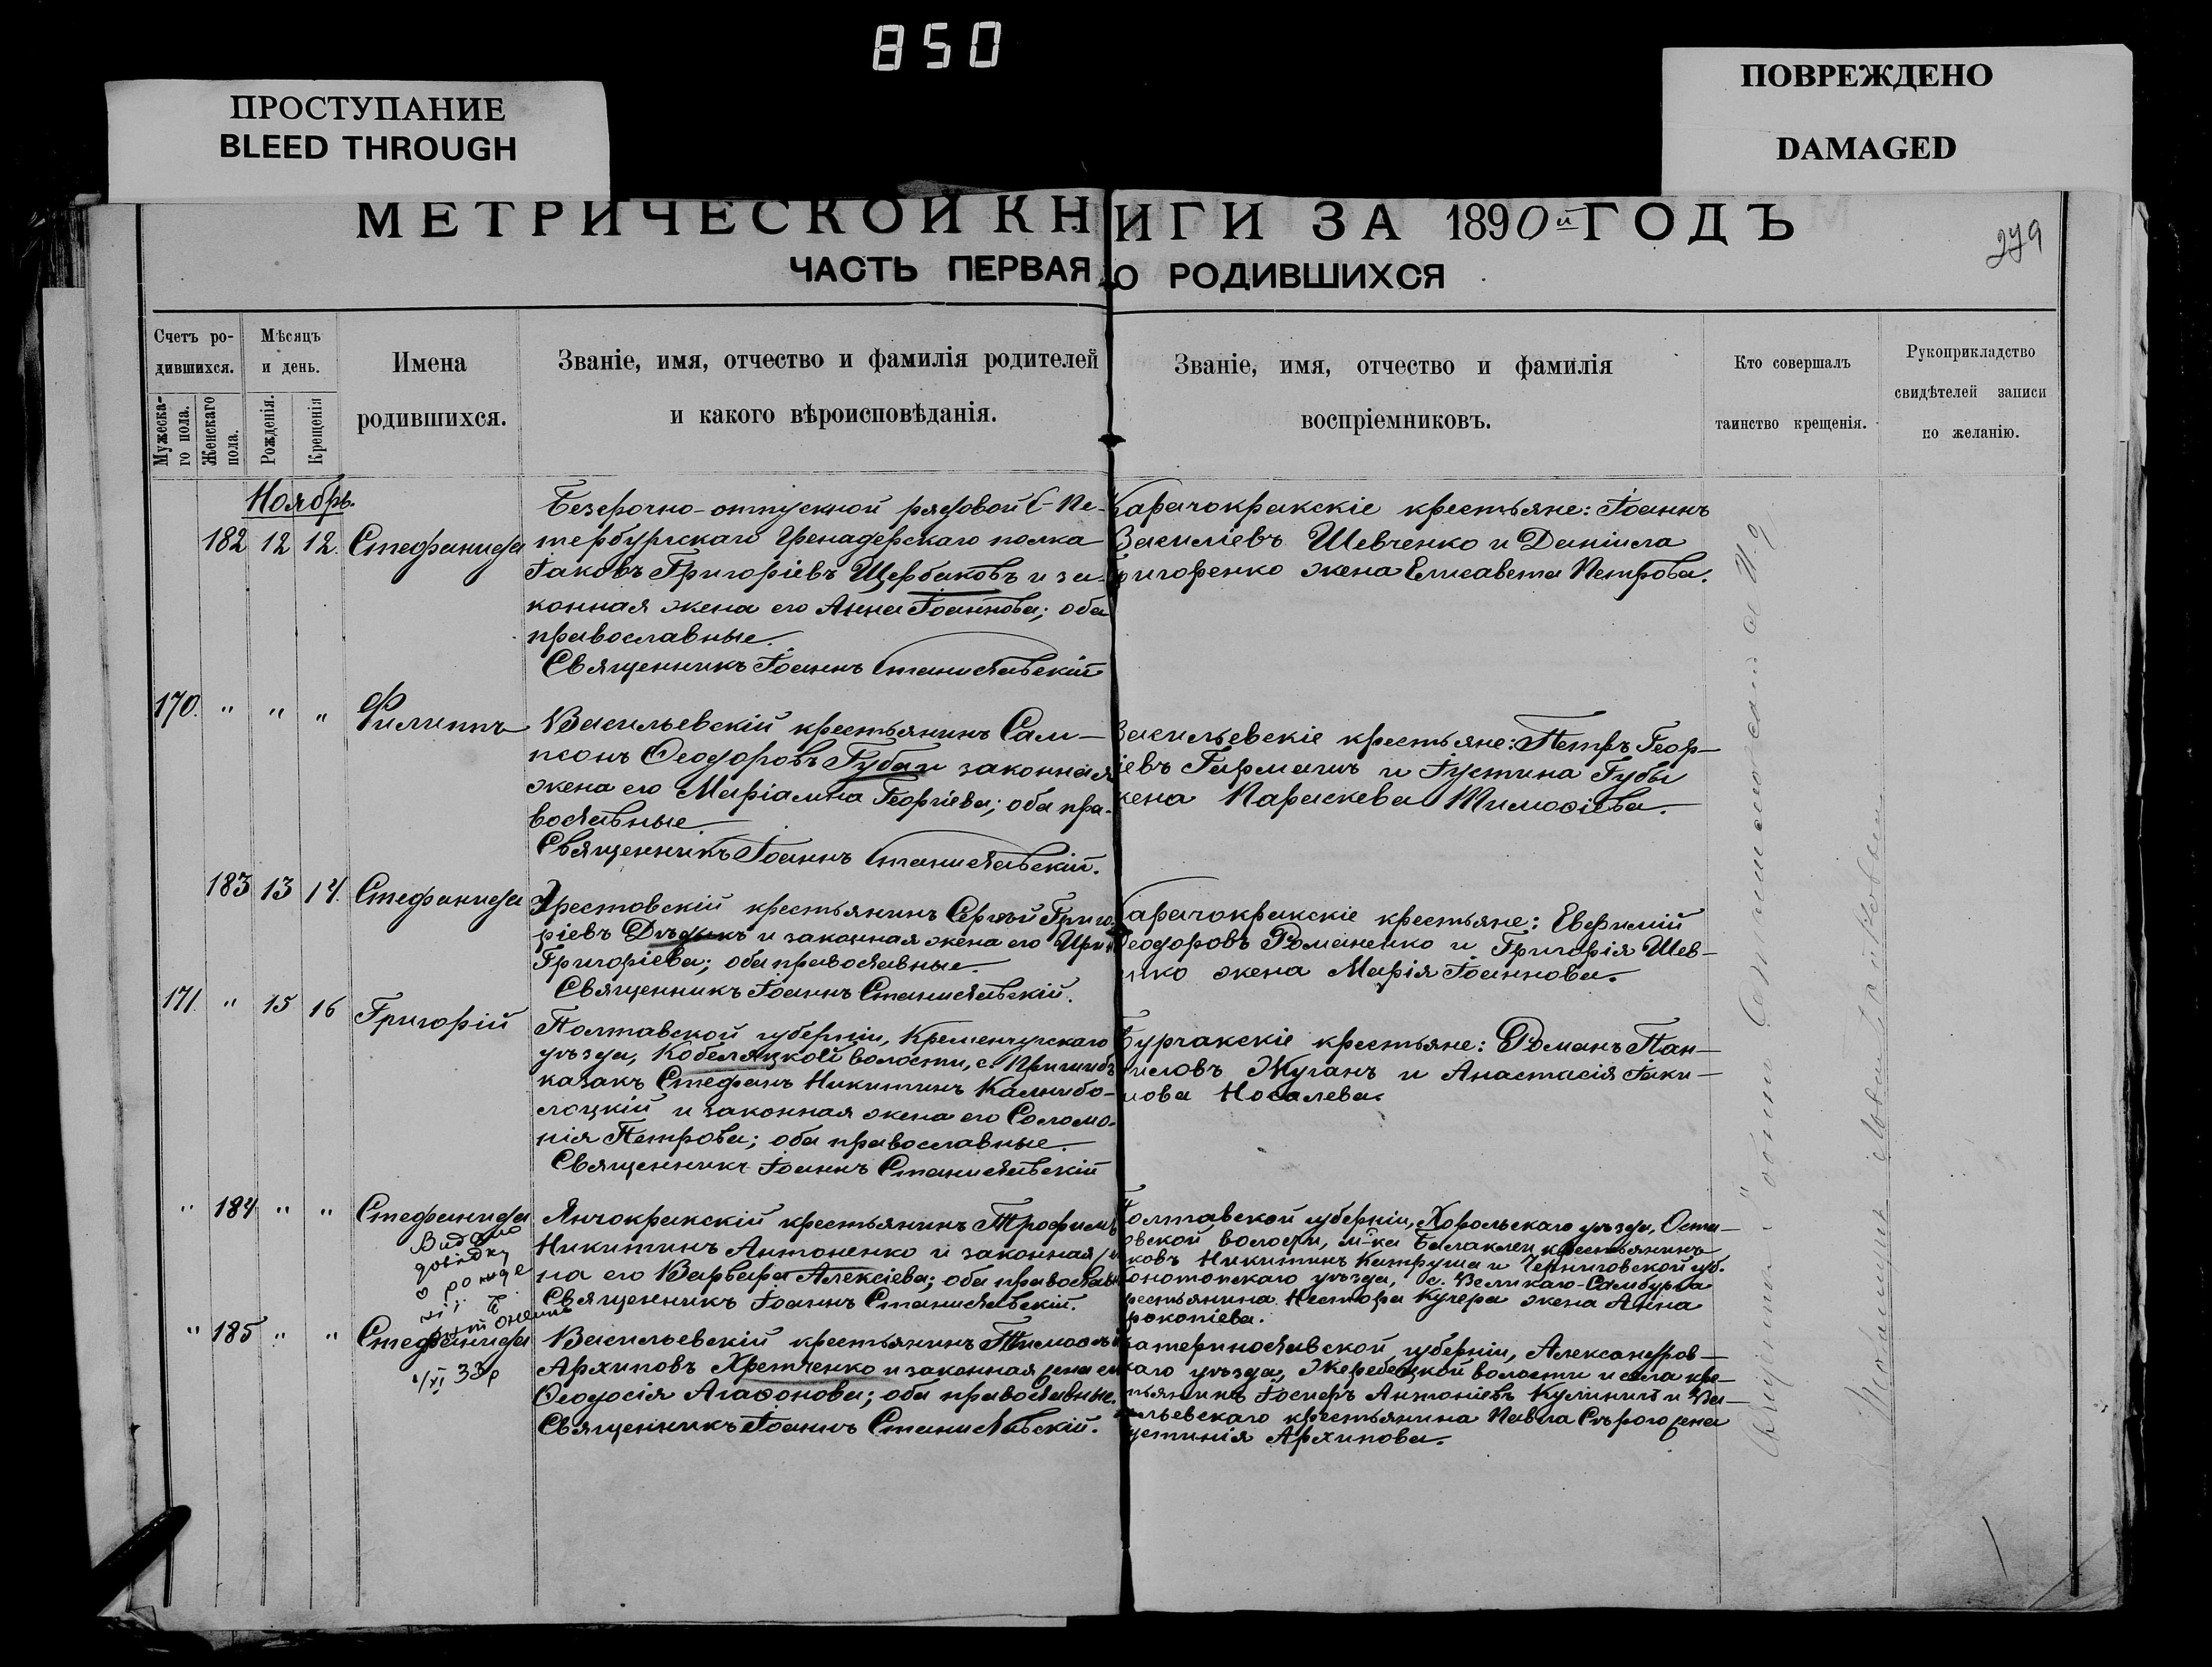 850
ПРОСТУПАНИЕ
BLEED THROUGH
ПОВРЕЖДЕНО
DAMAGED
МЕТРИЧЕСКОЙ КНИГИ ЗА 1890й ГОДЪ
279
ЧАСТЬ ПЕРВАЯ О РОДИВШИХСЯ
Счетъ ро-
дившихся.
Мужеска-
го пола.
Женскаго
пола.
Мѣсяцъ
и день.
Рожденія.
Крещенія
Имена
родившихся.
Званіе, имя, отчество и фамилія родителей
и какого вѣроисповѣданія.
Званіе, имя, отчество и фамилія
воспріемниковъ.
Кто совершалъ
таинство крещенія.
Рукоприкладство
свидѣтелей записи
по желанію.
Ноябрь.
182 12 12. Стефанида
Безсрочно-отпускной рядовой С-Пе-
тербургскаго Гренадерскаго полка
Іаковъ Григоріевъ Щербаковъ и за-
конная жена его Анна Іоаннова; оба
православные.
Священникъ Іоаннъ Станиславскій
Карачокракскіе крестьяне: Іоаннъ
Василіевъ Шевченко и Даніила
Григоренко жена Елисавета Петрова.
170. " " " Филиппъ
Васильевскій крестьянинъ Сам-
псонъ Ѳеодоровъ Губа и законная
жена его Маріамна Георгіева; оба пра-
вославные.
Священникъ Іоаннъ Станиславскій.
Васильевскіе крестьяне: Петръ Геор-
іевъ Гармашъ и Іустина Губы
жена Параскева Тимоѳіева.
183 13 14. Стефанида
Эрестовскій крестьянинъ Сергѣй Григо-
ріевъ Дѣдыкъ и законная жена его Ири
Григоріева; оба православные.
Священникъ Іоаннъ Станиславскій.
Карачокракскіе крестьяне: Евфимій
Ѳеодоровъ Романенко и Григорія Шев-
нко жена Марія Іоаннова.
171. " 15 16 Григорій
Полтавской губерніи, Кременчугскаго
уѣзда, Кобеляцкой волости, с. Пришибъ
казакъ Стефанъ Никитинъ Калнибо-
лоцкій и законная жена его Соломо-
нія Петрова; оба православные.
Священникъ Іоаннъ Станиславскій
Бурчакскіе крестьяне: Романъ Пан-
филовъ Жуганъ и Анастасія Іаки-
мова Ковалева.
" 184 " " Стефанида
Видано
довідку
о рожде
Янчокракскій крестьянинъ Трофимъ
Никитинъ Антоненко и законная же
на его Варвара Алексіева; оба православ
Священникъ Іоаннъ Станиславскій.
Полтавской губерніи, Хорольскаго уѣзда, Оста-
овской волости, м-ка Балаклеи крестьянинъ
ковъ Никитинъ Катруша и Черниговской губ.
Конотопскаго уѣзда, с. Великаго-Самбура
крестьянина Нестора Кучера жена Анна
Прокопіева.
" 185 " " Стефанида
1/XI 33р
Васильевскій крестьянинъ Тимоѳей
Архиповъ Хретченко и законная жена ег
Ѳеодосія Агаѳонова; оба православные.
Священникъ Іоаннъ Станиславскій.
Екатеринославской губерніи, Александров-
скаго уѣзда, Жеребецкой волости и села кре-
стьянинъ Іосифъ Антоніевъ Кулиничъ и Ва-
сильевскаго крестьянина Павла Сѣрого жена
Іустинія Архипова.